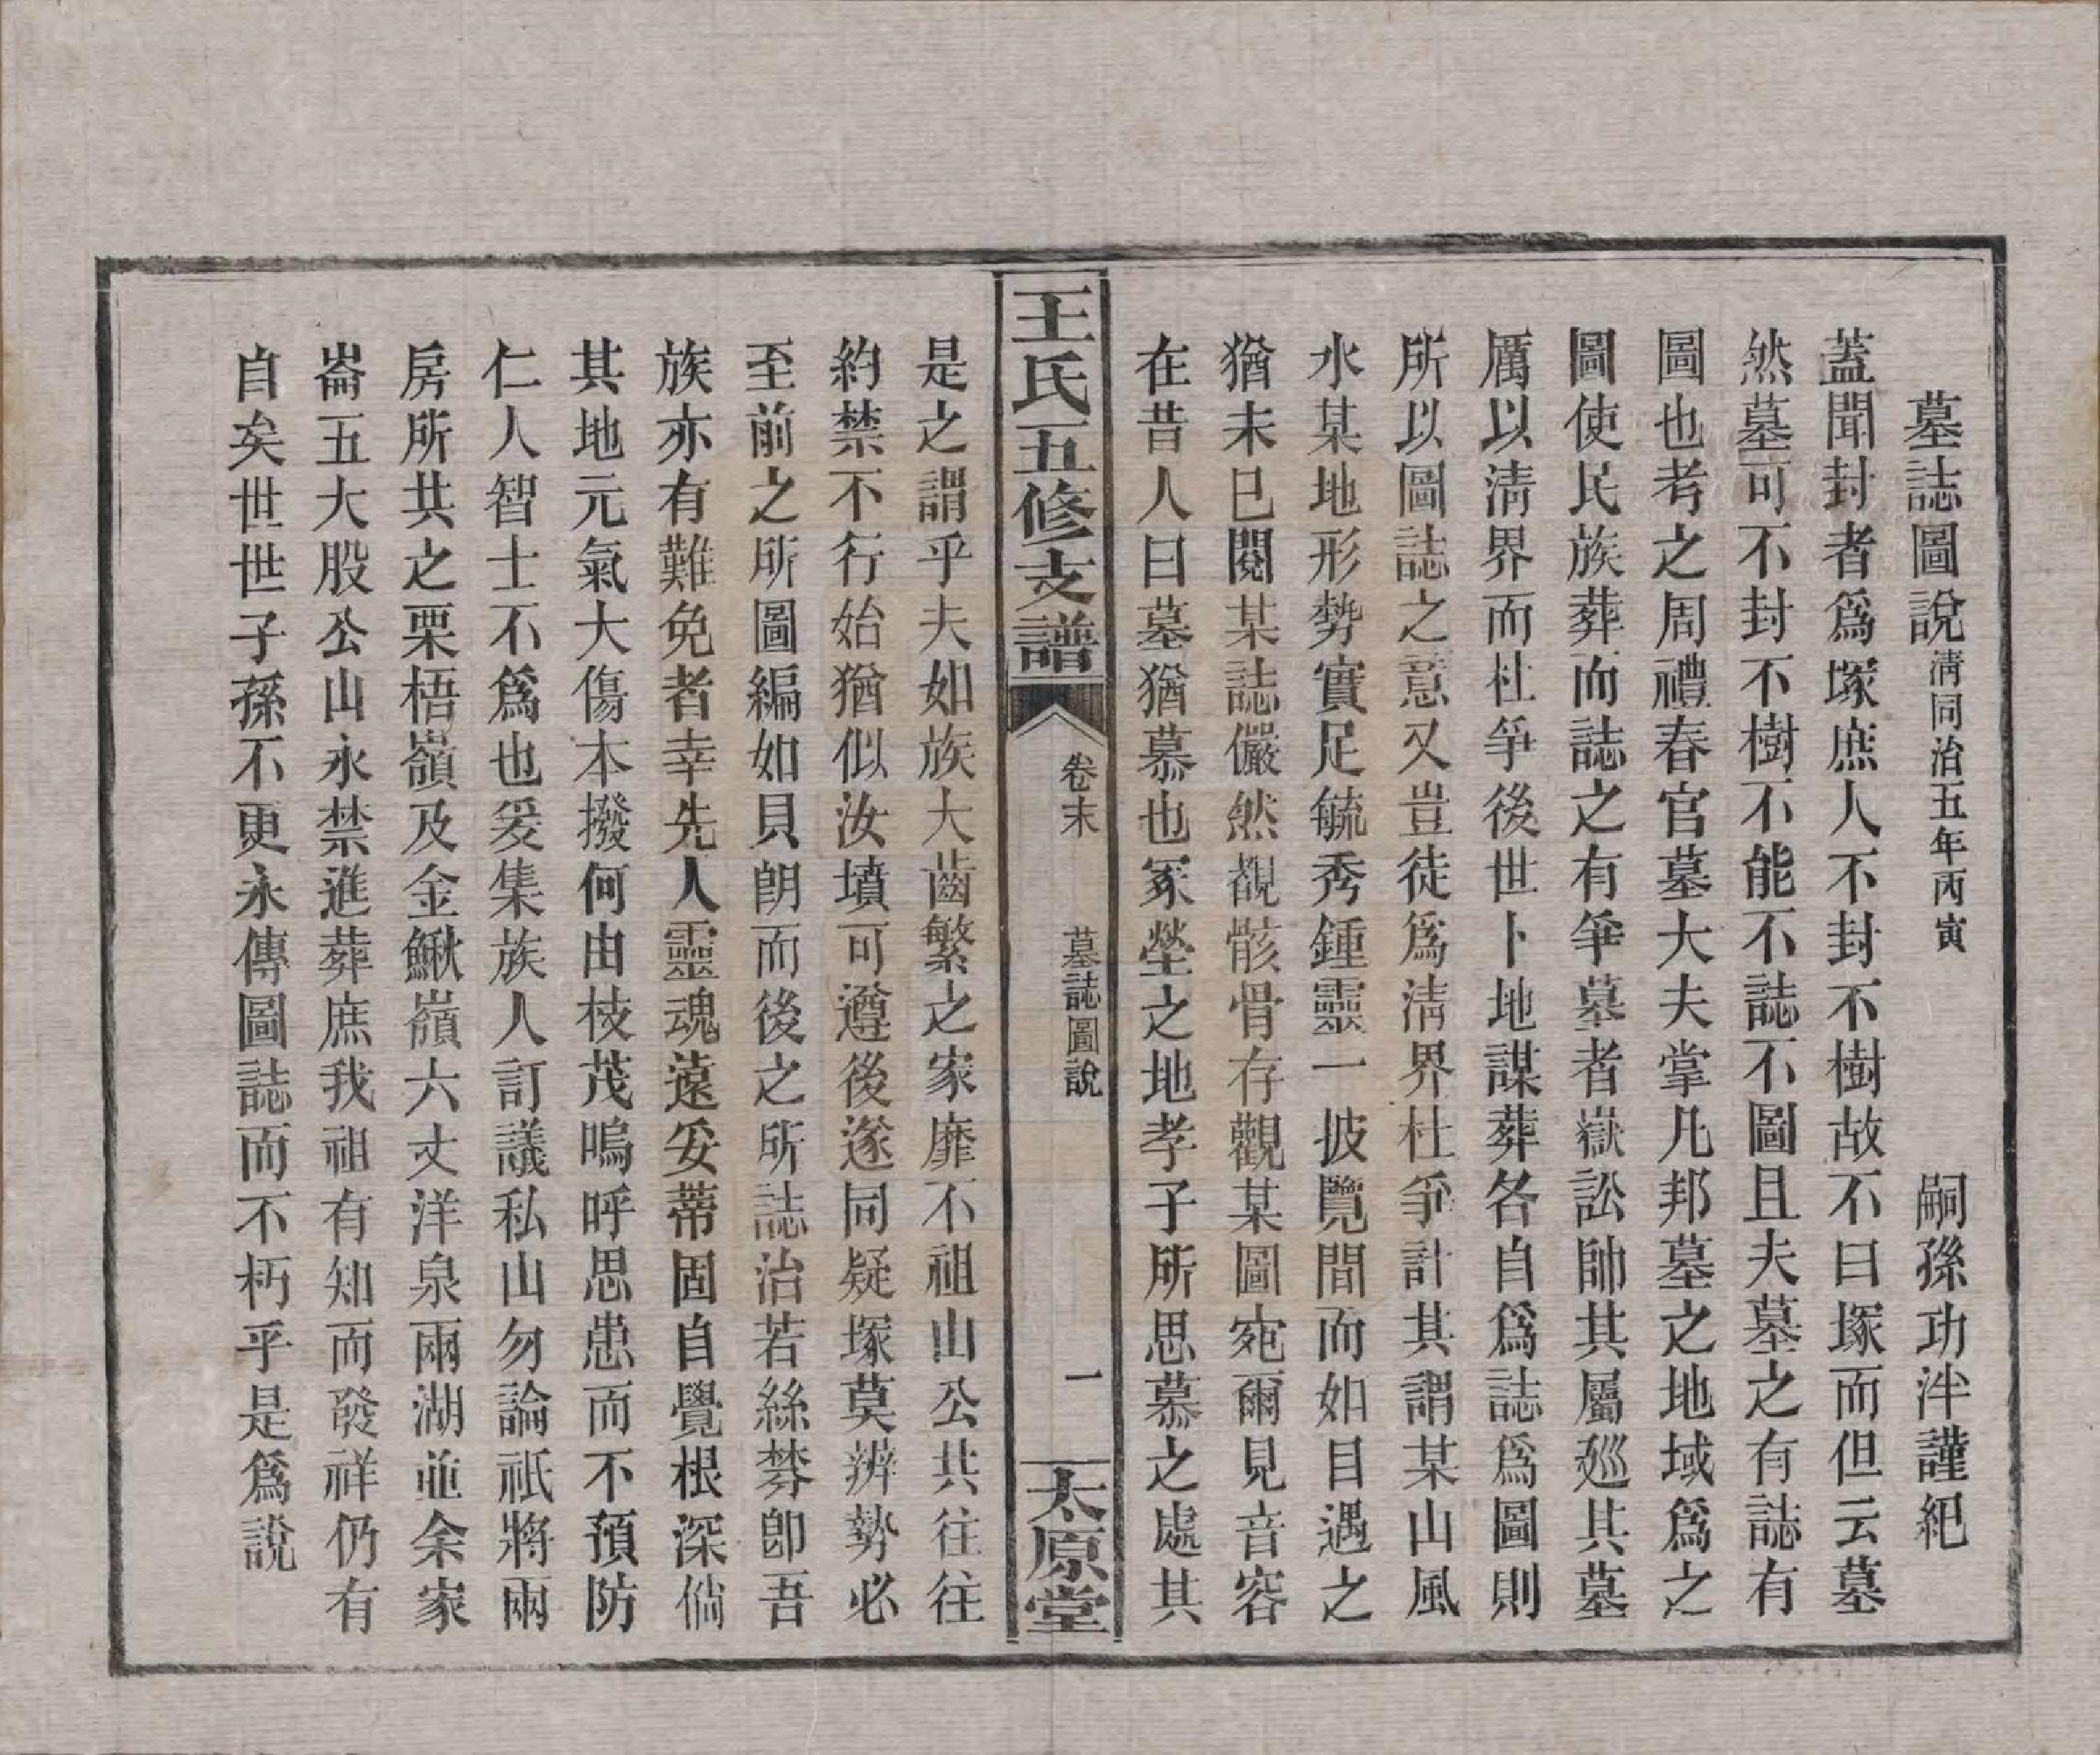 墓誌圖說清同治五年丙寅　嗣孫功泮謹紀
蓋聞封者爲塚庶人不封不樹故不曰塚而但云墓
然墓可不封不樹不能不誌不圖且夫墓之有誌有
圖也考之周禮春官墓大夫掌凡邦墓之地域爲之
圖使民族葬而誌之有爭墓者嶽訟帥其屬廵其墓
厲以淸界而杜爭後世卜地謀葬各自爲誌爲圖則
所以圖誌之意又豈徒爲淸界杜爭計其謂某山風
水某地形勢實足毓秀鍾靈一披覽間而如目遇之
猶未已閱某誌儼然覩骸骨存觀某圖宛爾見音容
在昔人曰墓猶慕也冢塋之地孝子所思慕之處其
王氏五修支譜
卷末
墓誌圖說
一
太原堂
是之謂乎夫如族大齒繁之家靡不祖山公共往往
約禁不行始猶似汝墳可遵後遂同疑塚莫辨勢必
至前之所圖編如貝朗而後之所誌治若絲棼卽吾
族亦有難免者幸先人靈魂遠妥蒂固自覺根深倘
其地元氣大傷本撥何由枝茂嗚呼思患而不預防
仁人智士不爲也爰集族人訂議私山勿論祇將兩
房所共之栗梧嶺及金鰍嶺六丈洋泉兩湖並余家
崙五大股公山永禁進葬庶我祖有知而發祥仍有
自矣世世子孫不更永傳圖誌而不朽乎是爲說